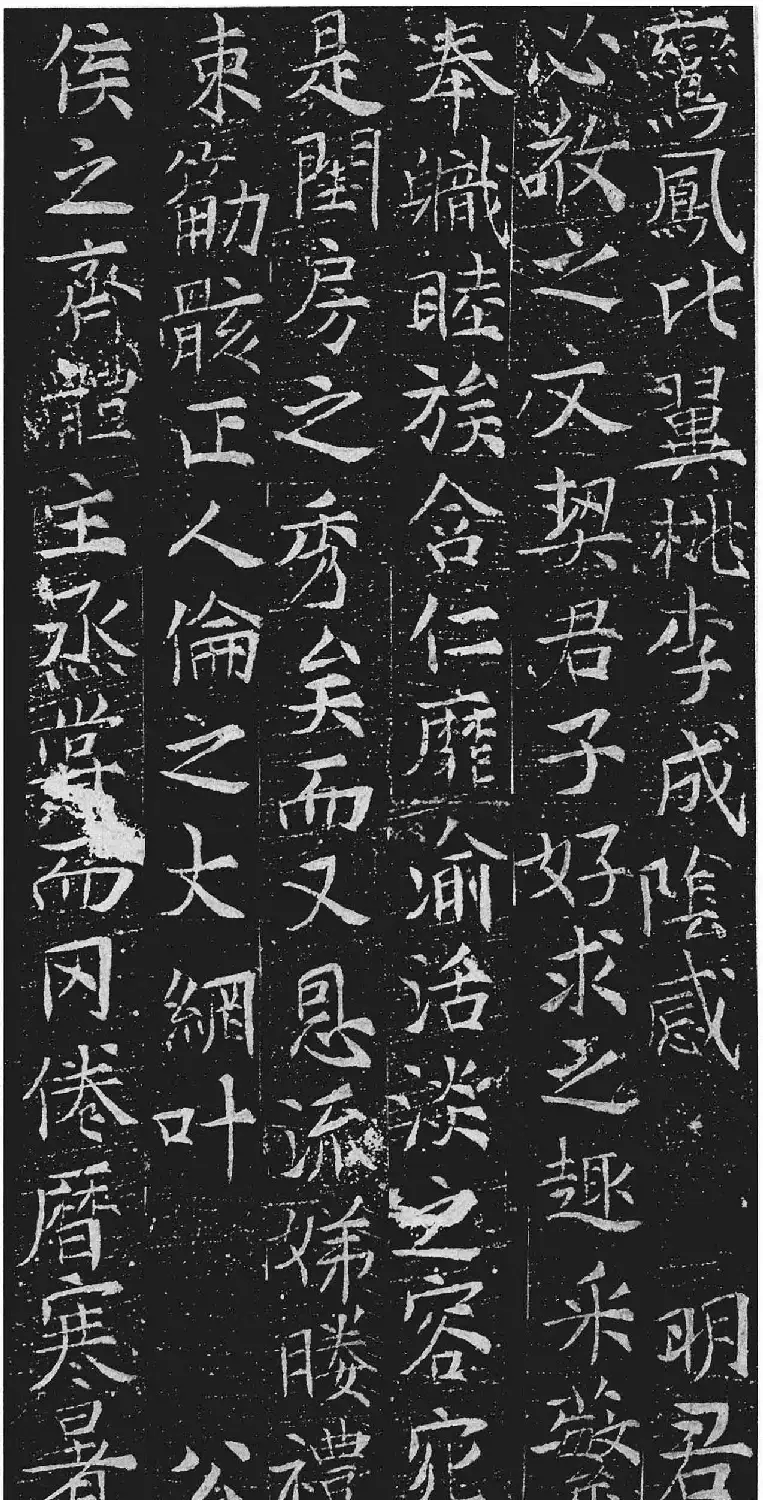 鸞鳳比翼桃李成陰感明君
必敬之文契君子好求之趣采蘩
奉職睦族含仁靡渝活淡之容宛
是閨房之秀矣而又恩流娣媵禮
束筋骸正人倫之大網叶公
侯之齊體主烝甞而罔倦曆寒暑